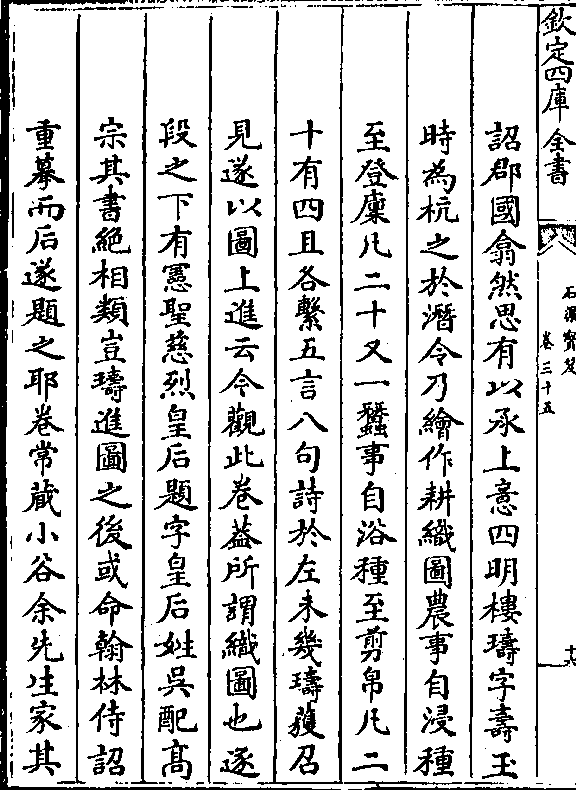 欽定四庫全書
石渠寳笈
卷三十五
十六
詔郡國翕然思有以承上意四明樓璹字壽玉
時為杭之於潛令乃繪作耕織圖農事自浸種
至登廩凡二十又一蠶事自浴種至剪帛凡二
十有四且各繫五言八句詩於左未幾璹獲召
見遂以圖上進云今觀此卷葢所謂織圖也逐
段之下有憲聖慈烈皇后題字皇后姓吳配髙
宗其書絶相類豈璹進圖之後或命翰林侍詔
重摹而后遂題之耶卷常藏小谷余先生家其